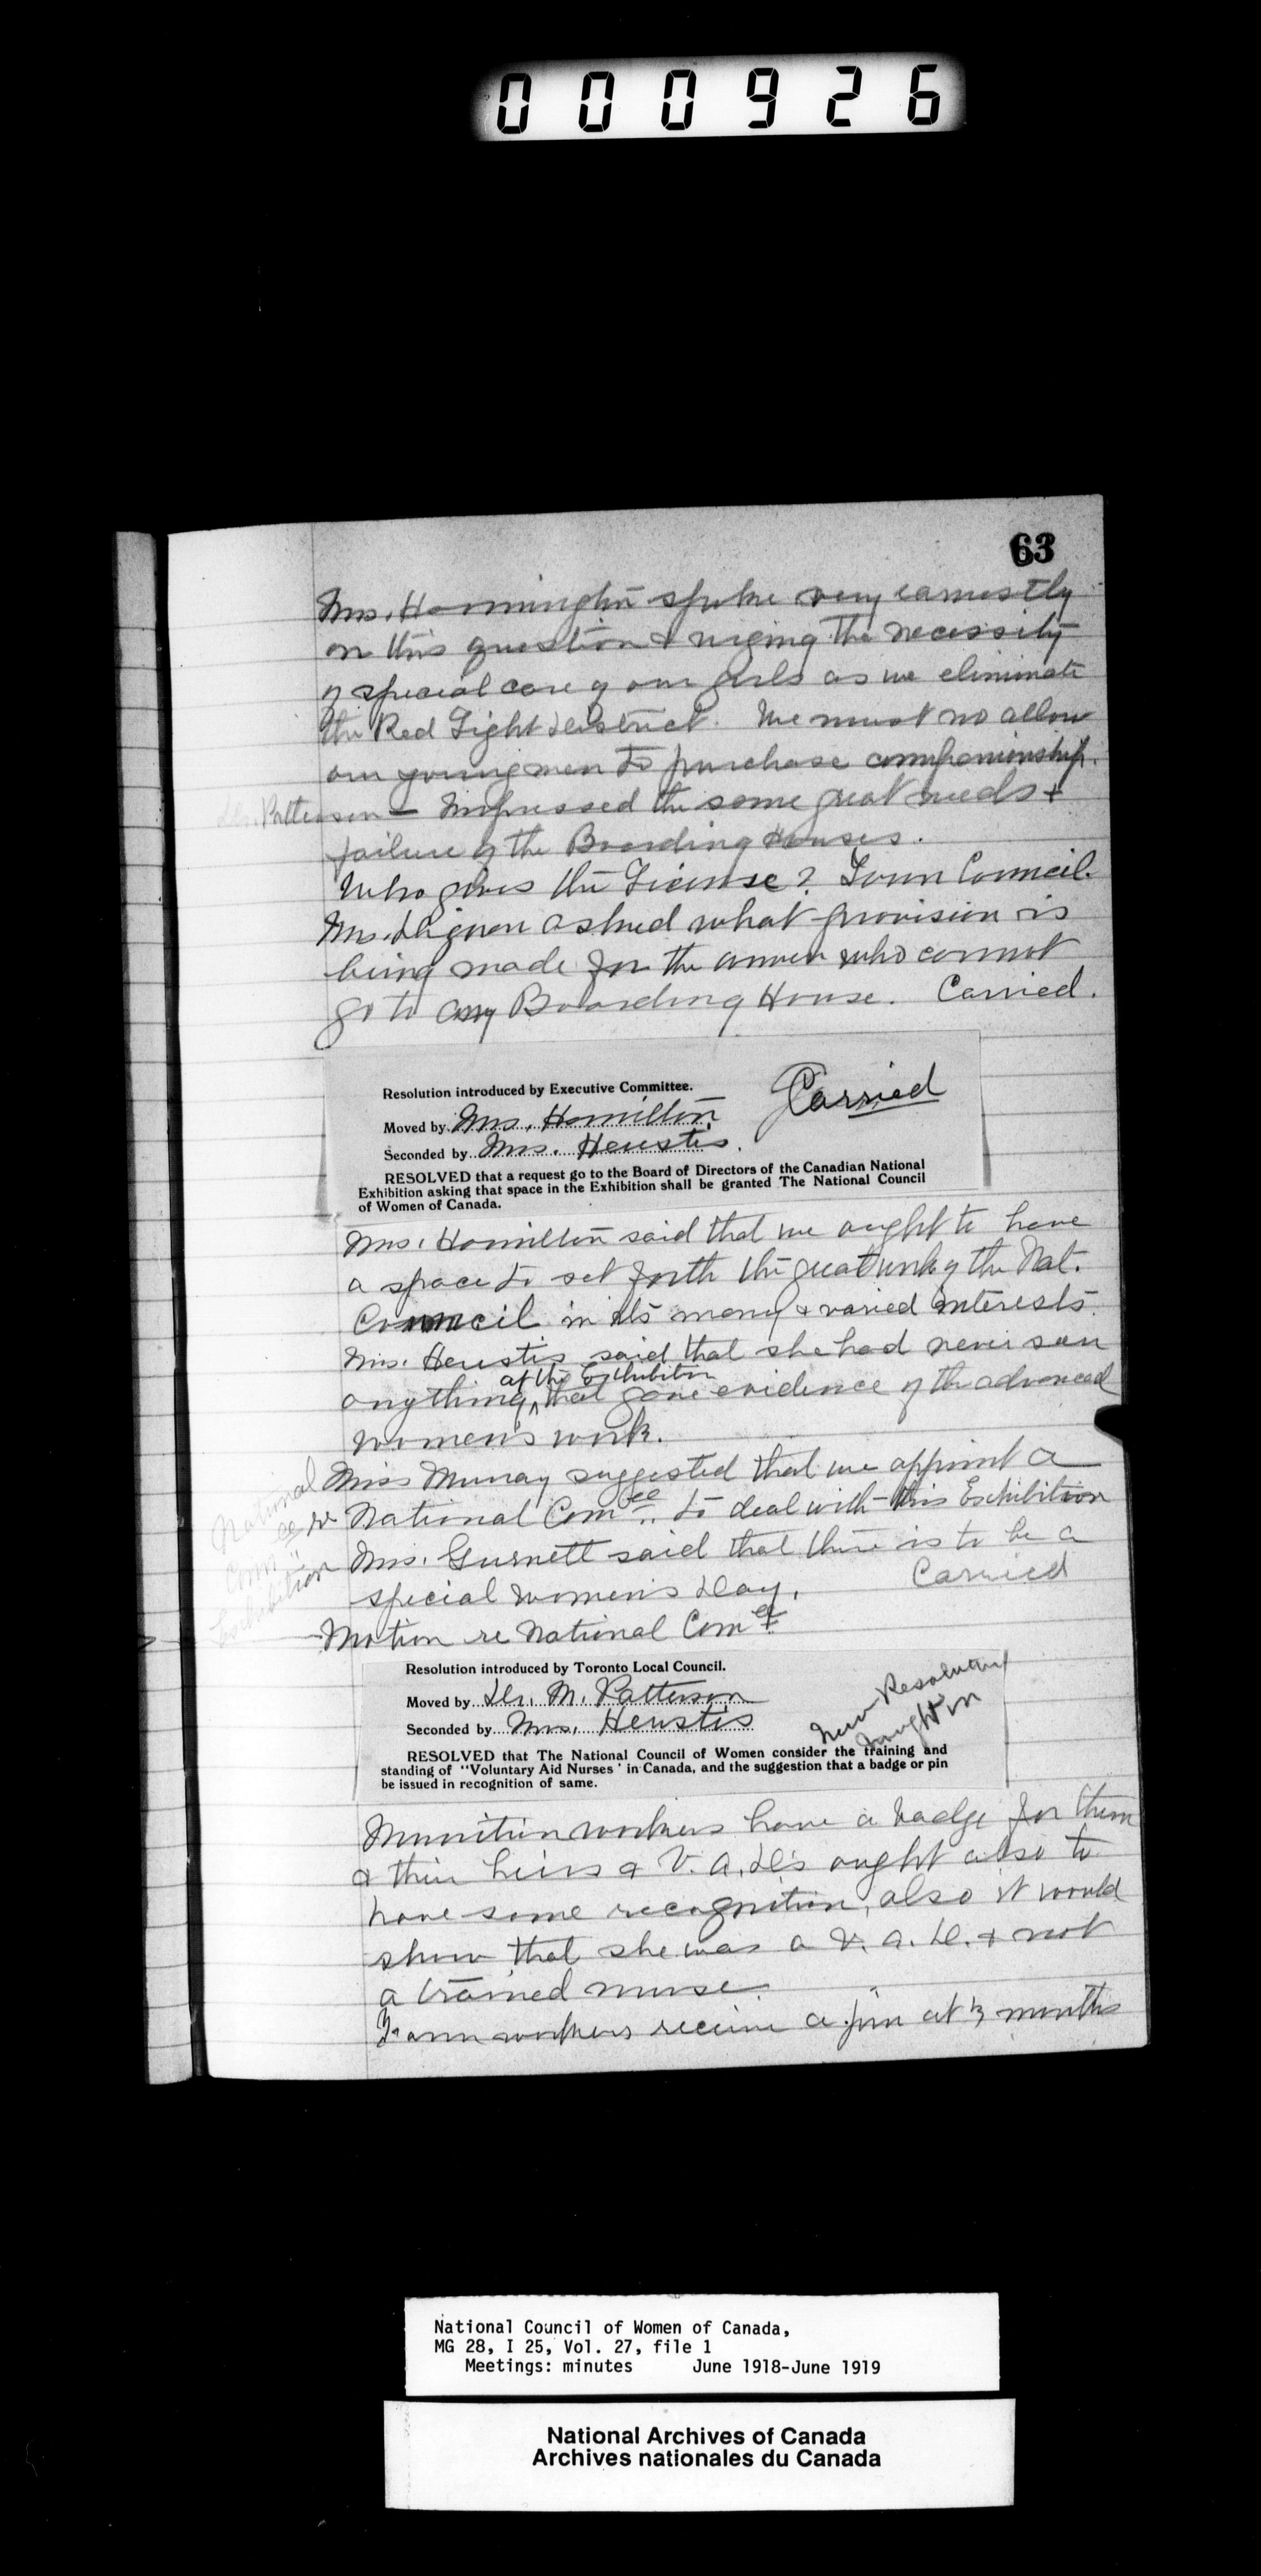 000926
63
Mrs. Hannington spoke very earnestly
on this question & urging the necessity
of special care of our girls as we eliminate
the Red Light District. We must no allow
our young men to purchase companionship.
Dr. Patterson — Impressed the same great needs &
failure of the Boarding Houses.
Who gives the License? Town Council.
Mrs. Dignon asked what provision is
being made for the women who cannot
go to any Boarding House. Carried.
Resolution introduced by Executive Committee.
Carried
Moved by Mrs. Hamilton
Seconded by Mrs. Heustis.
RESOLVED that a request go to the Board of Directors of the Canadian National
Exhibition asking that space in the Exhibition shall be granted The National Council
of Women of Canada.
Mrs. Hamilton said that we ought to have
a space to set forth the great work of the Nat.
Council in its many & varied interests.
Mrs. Heustis said that she had never seen
at the Exhibition
anything ^ that gave evidence of the advanced
women's work.
Miss Murray suggested that we appoint a
National Comee. to deal with this Exhibition
National
Com ee re
Exhibition
Mrs. Gurnett said that there is to be a
special women's Day. Carried
Motion re National Come
Resolution introduced by Toronto Local Council.
Moved by Dr. M. Patterson
Seconded by Mrs. Heustis
New Resolution
brought in
RESOLVED that The National Council of Women consider the training and
standing of "Voluntary Aid Nurses' in Canada, and the suggestion that a badge or pin
be issued in recognition of same.
Munition workers have a badge for them
& their heirs & V.A.D's ought also to
have some recognition, also it would
show that she was a V.A.D. & not
a trained nurse.
Farm workers receive a pin at 3 months
National Council of Women of Canada,
MG 28, I 25, Vol. 27, file 1
Meetings: minutes June 1918-June 1919
National Archives of Canada
Archives nationales du Canada